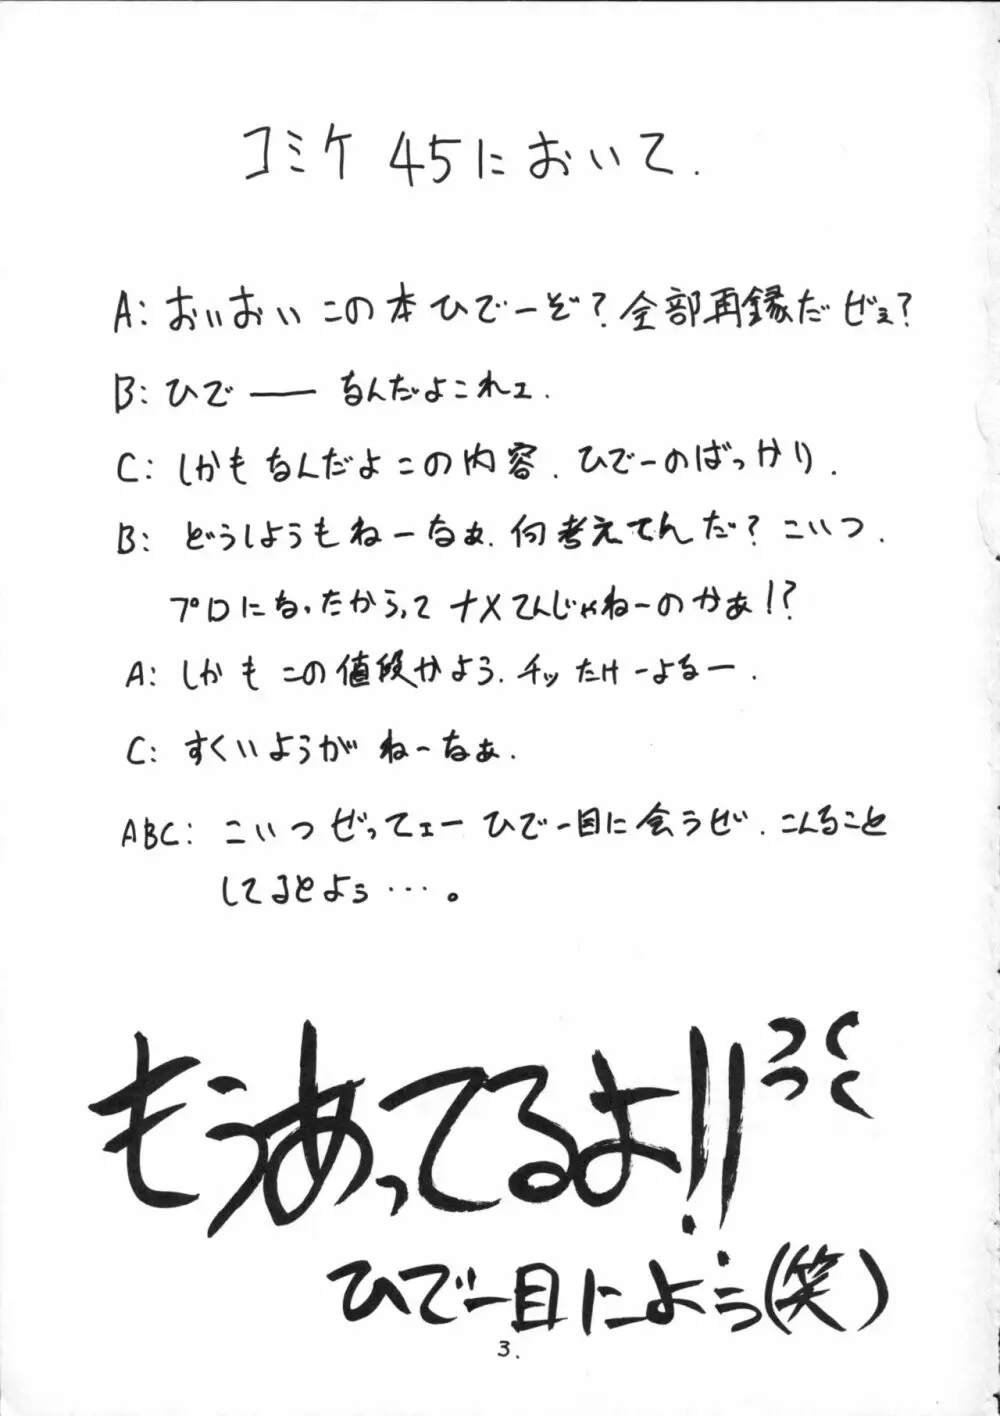 コミケ 45において.
A: おいおい この本ひでーぞ? 全部再録だぜぇ?
B: ひで―― なんだよこれェ.
C: しかもなんだよこの内容. ひでーのばっかり.
B: どうしようもねーなぁ. 何考えてんだ? こいつ.
プロになったからってナメてんじゃねーのかぁ!?
A: しかもこの値段がよう. チッたけーよなー.
C: すくいようがねーなぁ.
ABC: こいつぜってェーひでー目に会うぜ. こんなこと
してるとよぅ・・・。
もうあってるよ!! うっくく
ひでー目によぅ(笑)
3.